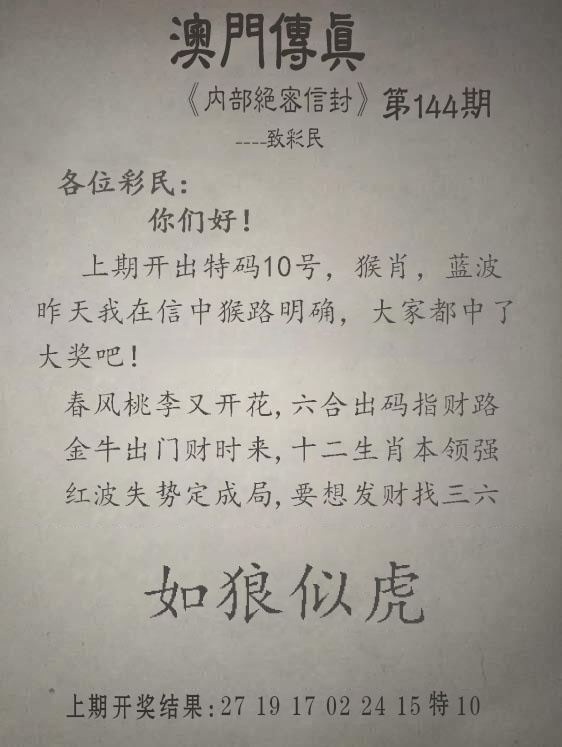 澳門傳眞
《内部絕密信封》第144期
----致彩民
各位彩民：
你们好！
上期开出特码10号，猴肖，蓝波
昨天我在信中猴路明确，大家都中了
大奖吧！
春风桃李又开花,六合出码指财路
金牛出门财时来,十二生肖本领强
红波失势定成局,要想发财找三六
如狼似虎
上期开奖结果:27 19 17 02 24 15特10